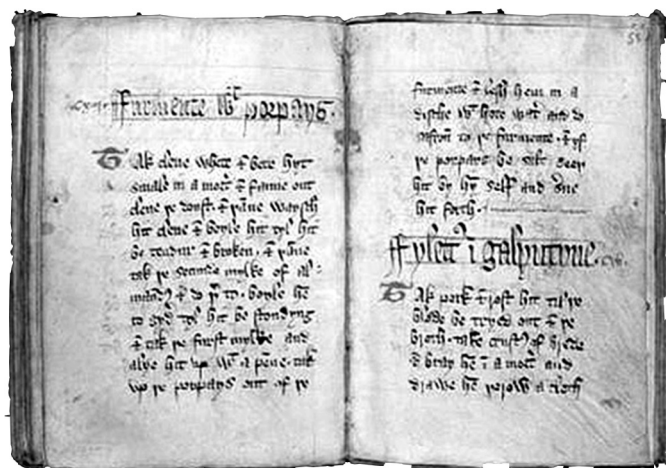 Furmente wt porpays.
Tak clene whete & bete hyt
smale in a mort' & fanne out
clene þe doust. & þanne waysch
hit clene & boyle hit tyl hit
be tendur & broken. & þanne
tak þe secunde mylke of al=
maund' & do þ'to. boyle hē
to gyd' tyl hit be stondyng
& tak þe furst mylke and
alye hit up wt a pēne. tak
up þe porpays out of þe
furmente & lesh hem in a
dishe wt hote wat' and do
safron to þe furmente. & yf
þe porpays be salt seeþ
hit by hȳ self and s'ue
hit forth.
ffylett' ī galyntyne.
Tak pork & rost hit til þe
blode be tryed out & þe
broth. take crust' of brede
& bray hē ī a mort' and
drawe hē þorow a cloth